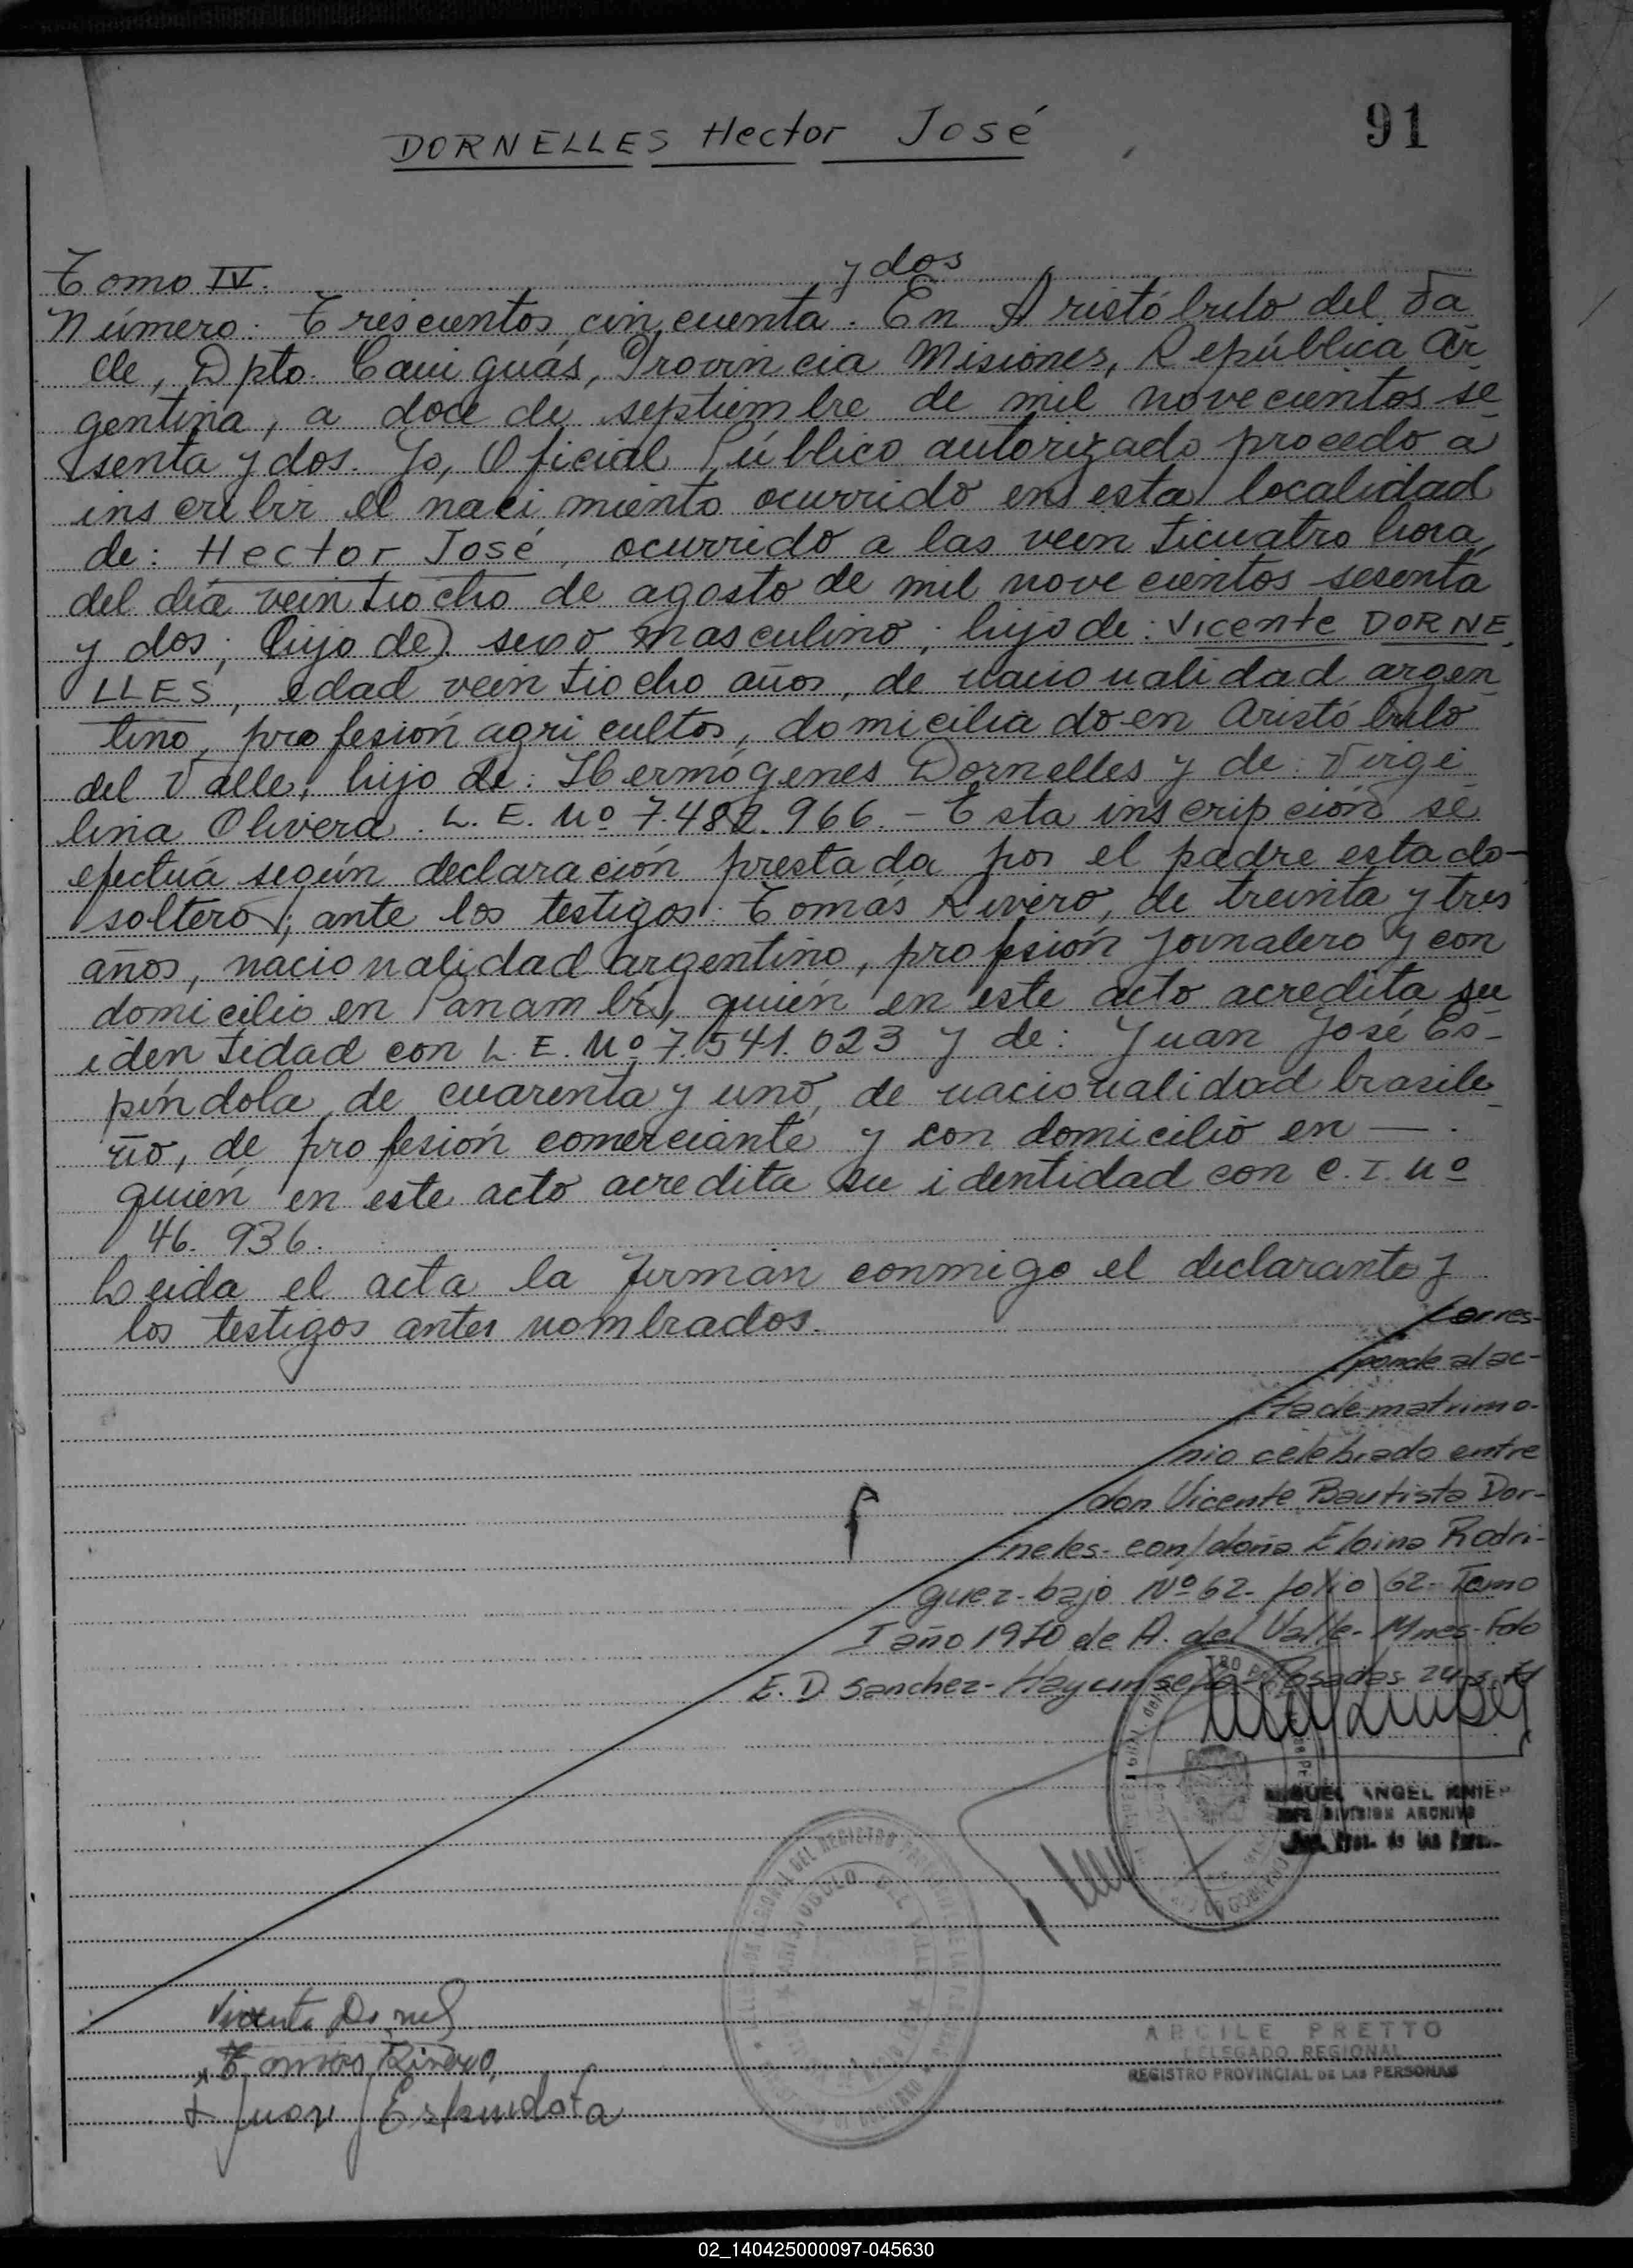 DORNELLES Hector José
91
Tomo IV.
y dos
Número: Trescientos cincuenta. En Aristóbulo del Va
lle, Dpto. Cainguás, Provincia Misiones, República Ar
gentina, a doce de septiembre de mil novecientos se
senta y dos. Yo, Oficial Público autorizado procedo a
inscribir el nacimiento ocurrido en esta localidad
de: Hector José, ocurrido a las veinticuatro hora
del día veintiocho de agosto de mil novecientos sesenta
y dos; (hijo de) sexo masculino; hijo de: Vicente DORNE
LLES, edad veintiocho años, de nacionalidad argen
tino, profesión agricultor, domiciliado en Aristóbulo
del Valle, hijo de: Hermógenes Dornelles y de: Virgi
lina Olivera. L. E. Nº 7.482.966. - Esta inscripción se
efectuá según declaración prestada por el padre estado-
soltero; ante los testigos: Tomás Rivero, de treinta y tres
años, nacionalidad argentino, profesión jornalero y con
domicilio en Panambí, quién en este acto acredita su
identidad con L. E. Nº 7.541.023 y de: Juan José Es-
píndola, de cuarenta y uno, de nacionalidad brasile
ño, de profesión comerciante y con domicilio en — .
quién en este acto acredita su identidad con C. I. Nº
46. 936.
Leída el acta la firman conmigo el declarante y
los testigos antes nombrados.
Corres-
ponde al ac-
ta de matrimo-
nio celebrado entre
don Vicente Bautista Dor-
neles- con/doña Elbina Rodri-
guez- bajo Nº 62- folio 62- Tomo
I año 1970 de A. del Valle- Mnes- Fdo
E. D. Sanchez- Hay un sello- Posadas 24-3-
MIGUEL ANGEL
JEFE DIVISION ARCHIVO
Reg. Prov. de las Pers.
DEL REGISTRO PROVINCIAL DE LAS PERSONAS
ARISTOBULO DEL VALLE
Vicente Dornel
x Tomas Rivero
x Juan J Espindola
ARCILE PRETTO
DELEGADO REGIONAL
REGISTRO PROVINCIAL DE LAS PERSONAS
02_140425000097-045630